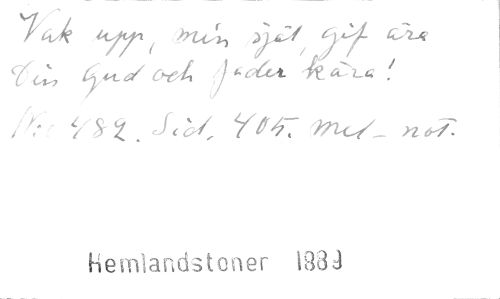 Vak upp, min själ, gif ära
Din Gud och fader kära!
No 482. Sid. 405. Mel-not.
Hemlandstoner 1889